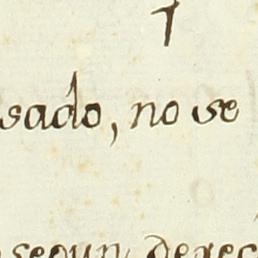 sado, no se
segun derec